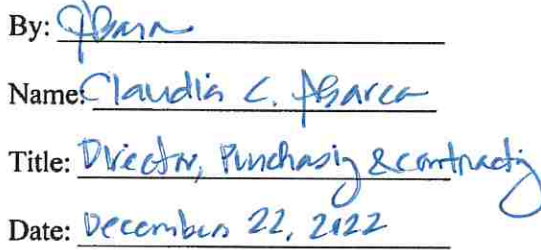 By:
Name: Claudia C. Abarca
Title: Director, Purchasing & contracting
Date: December 22, 2022